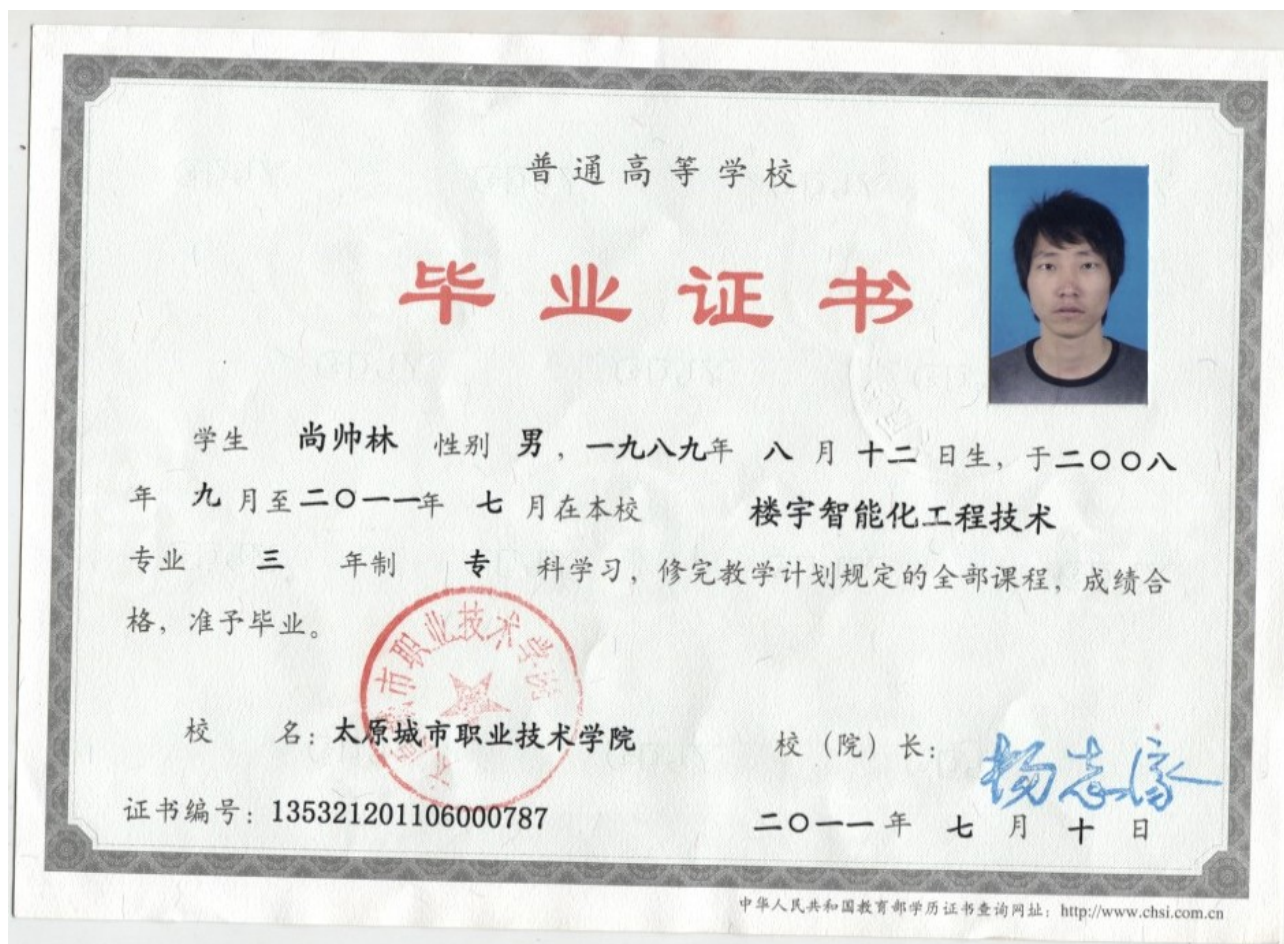 普通高等学校
毕业证书
学生 尚帅林 性别 男，一九八九年 八 月 十二 日生，于二〇〇八
年 九 月至二〇一一年 七 月在本校 楼宇智能化工程技术
专业 三 年制 专 科学习，修完教学计划规定的全部课程，成绩合
格，准予毕业。
太原城市职业技术学院
校 名：太原城市职业技术学院
校（院）长：
证书编号：135321201106000787
二〇一一 年 七 月 十 日
中华人民共和国教育部学历证书查询网址：http://www.chsi.com.cn